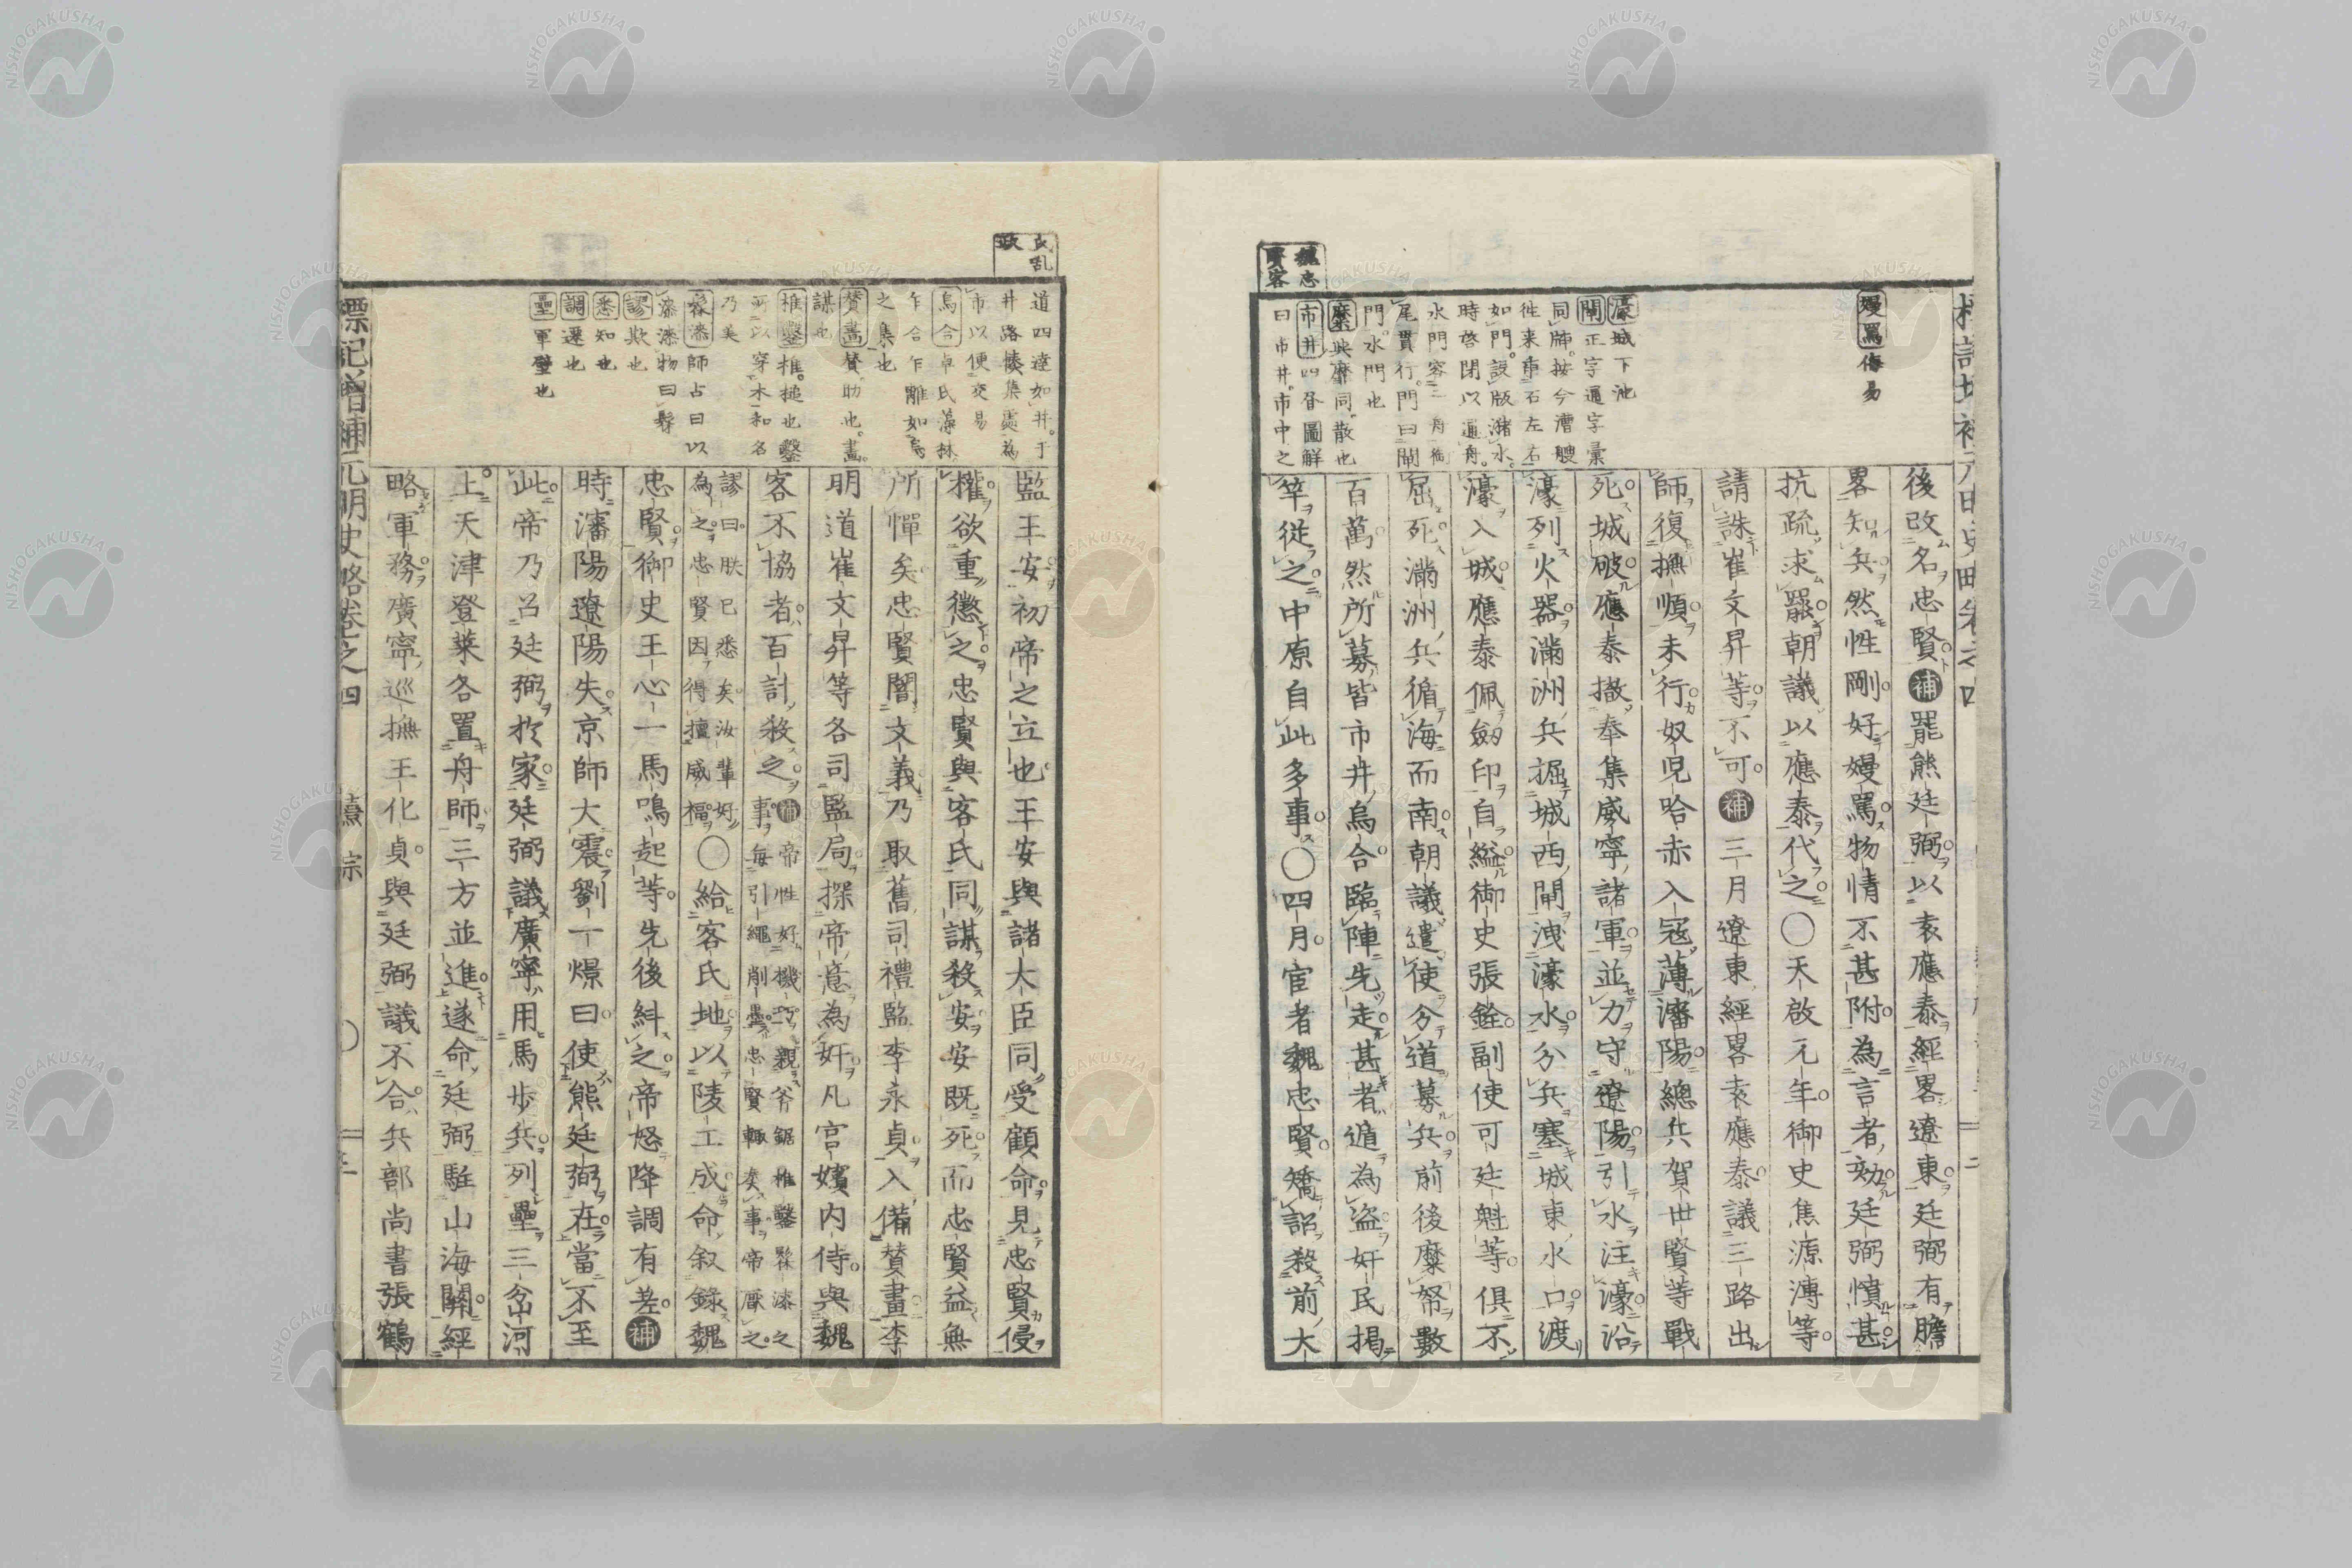 魏忠
賢客
嫚罵侮易
濠城下池
閘正字通字彙
同牐按今漕艘
徃来重石左右
如門設版潴水
時啓閉以通舟
水門容二舟銜
尾貫行門曰閘
門水門也
糜與靡同散也
市井四昏圖解
曰市井市中之
後改名忠賢補罷熊廷弼以袁應泰經畧遼東廷弼有膽
畧知兵然性剛好嫚罵物情不甚附為言者劾廷弼憤甚
抗疏求罷朝議以應泰代之〇天啟元年御史焦源溥等
請誅崔文昇等不可補三月遼東經畧袁應泰議三路出
師復撫順未行奴児哈赤入冦薄瀋陽總兵賀世賢等戰
死城破應泰撤奉集威寧諸軍並力守遼陽引水注濠沿
濠列火器滿洲兵掘城西閘洩濠水分兵塞城東水口渡
濠入城應泰佩劔印自縊御史張銓副使可廷魁等俱不
屈死滿洲兵循海而南朝議遣使分道募兵前後糜帑數
百萬然所募皆市井烏合臨陣先走甚者遁為盜奸民揭
竿從之中原自此多事〇四月宦者魏忠賢矯詔殺前大
氏乱
政
道四達如井于
井路㨿集䖏為
市以便交易
烏合卓氏藻林
乍合乍離如烏
之集也
賛畵賛助也畵
謀也
椎鑿椎搥也鑿
所以穿木和名
乃美
髹漆師占曰以
漆漆物曰髹
謬欺也
悉知也
調遷也
壘軍壁也
監王安初帝之立也王安與諸大臣同受顧命見忠賢侵
權欲重懲之忠賢與客氏同謀殺安安既死而忠賢益無
所憚矣忠賢闇文義乃取舊司禮監李永貞入備賛畫李
明道崔文昇等各司監局探帝意為奸凡宮嬪内侍與魏
客不協者百計殺之補帝性好機巧親斧鋸椎鑿髹漆之
事每引繩削墨忠賢輙奏事帝厭之
謬曰朕已悉矣汝輩好
為之忠賢因得擅威福〇給客氏地以陵工成命叙錄魏
忠賢御史王心一馬鳴起等先後糾之帝怒降調有差補
時瀋陽遼陽失京師大震劉一燝曰使熊廷弼在當不至
此帝乃召廷弼於家廷弼議廣寧用馬步兵列壘三岔河
上天津登萊各置舟師三方並進遂命廷弼駐山海關經
略軍務廣寧巡撫王化貞與廷弼議不合兵部尚書張鶴
標記增補元明史略卷之四
熹宗